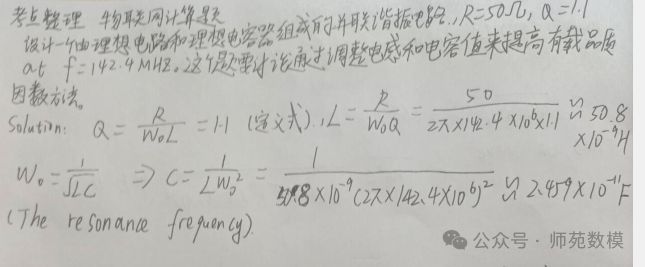 考点整理 物联网计算题
设计一个由理想电路和理想电容器组成的并联谐振电路.,R=50Ω, Q=1.1
at f=142.4MHZ。这个题要讨论通过调整电感和电容值来提高有载品质
因数方法。
Solution: Q = R/W₀L = 1.1 (定义式).,L = R/W₀Q = 50/2π×142.4×10⁶×1.1 ≈ 50.8×10⁻⁹H
W₀ = 1/√LC ⇒ C = 1/LW₀² = 1/50.8×10⁻⁹(2π×142.4×10⁶)² ≈ 2.459×10⁻¹¹F
(The resonance frequency).
公众号·师苑数模